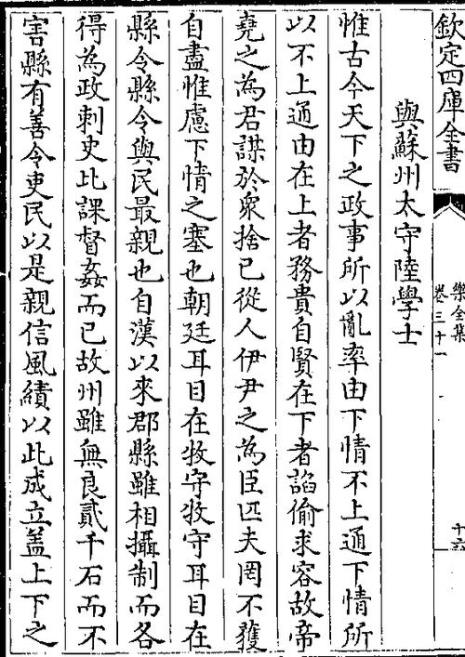 欽定四庫全書
樂全集
卷三十一
十六
與蘇州太守陸學士
惟古今天下之政事所以亂率由下情不上通下情所
以不上通由在上者務貴自賢在下者諂偷求容故帝
堯之為君謀於衆捨已從人伊尹之為臣匹夫罔不獲
自盡惟慮下情之塞也朝廷耳目在牧守牧守耳目在
縣令縣令與民最親也自漢以來郡縣雖相攝制而各
得為政刺史比課督姦而已故州雖無良貳千石而不
害縣有善令吏民以是親信風績以此成立盖上下之